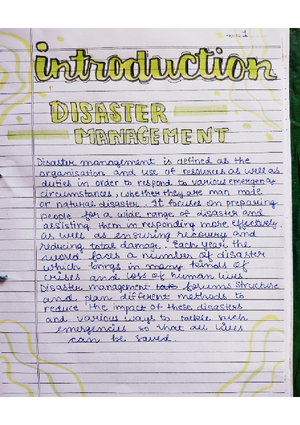 1
introduction
DISASTER
MANAGEMENT
Disaster management is defined as the
organisation and use of resources as well as
duties in order to respond to various emergency
circumstances, whether they are man made
or natural disaster. It focuses on preparing
people for a wide range of disaster and
assisting them in responding more effectively
as well as ensuring recovery and
reducing total damage. Each year the
world faces a number of disaster
which brings in many kinds of
crises and loss of human lives
Disaster management forums structure
and plan different methods to
reduce the impact of these disasters
and various ways to tackle such
emergencies so that all lives
can be saved.